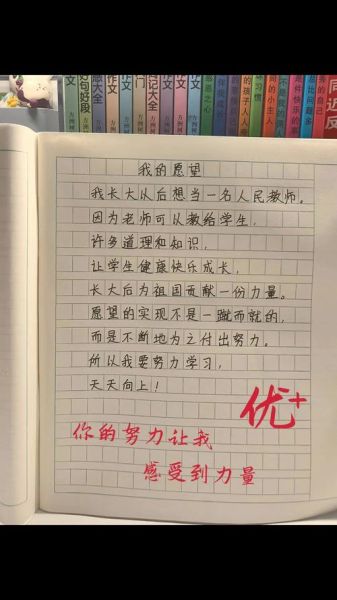 作文
好句好段
作文
日记大全
作文
我的愿望
我长大以后想当一名人民教师。
因为老师可以教给学生,
许多道理和知识,
让学生健康快乐成长,
长大后为祖国贡献一份力量。
愿望的实现不是一蹴而就的,
而是不断地为之付出努力。
所以我要努力学习,
天天向上!
优+
你的努力让我
感受到力量